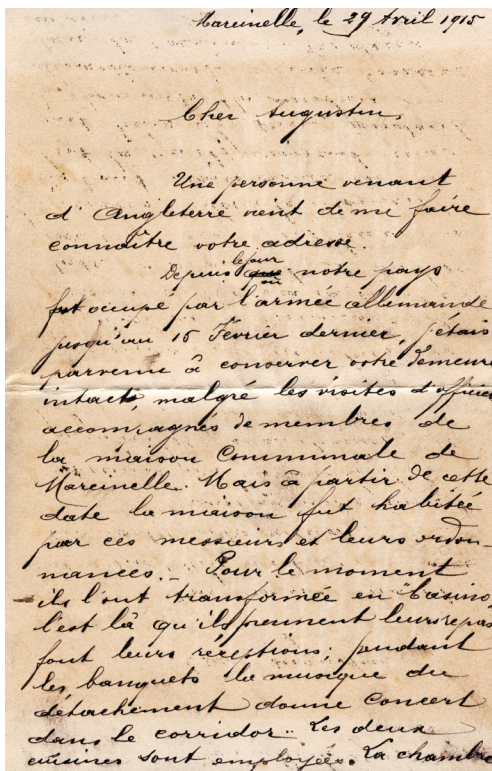 Marcinelle, le 29 Avril 1915
Cher Augustin,
Une personne venant
d'Angleterre vient de me faire
connaître votre adresse.
Depuis le jour où notre pays
fut occupé par l'armée allemande
jusqu'au 15 Février dernier, j'étais
parvenu à conserver votre demeure
intacte, malgré les visites d'officiers
accompagnés de membres de
la maison Communale de
Marcinelle. Mais à partir de cette
date la maison fut habitée
par ces messieurs et leurs ordon-
nances. _ Pour le moment
ils l'ont transformée en "Casino,
c'est là qu'ils prennent leurs repas
font leurs réceptions; pendant
les banquets la musique du
détachement donne concert
dans le corridor. Les deux
cuisines sont employées. La chambre